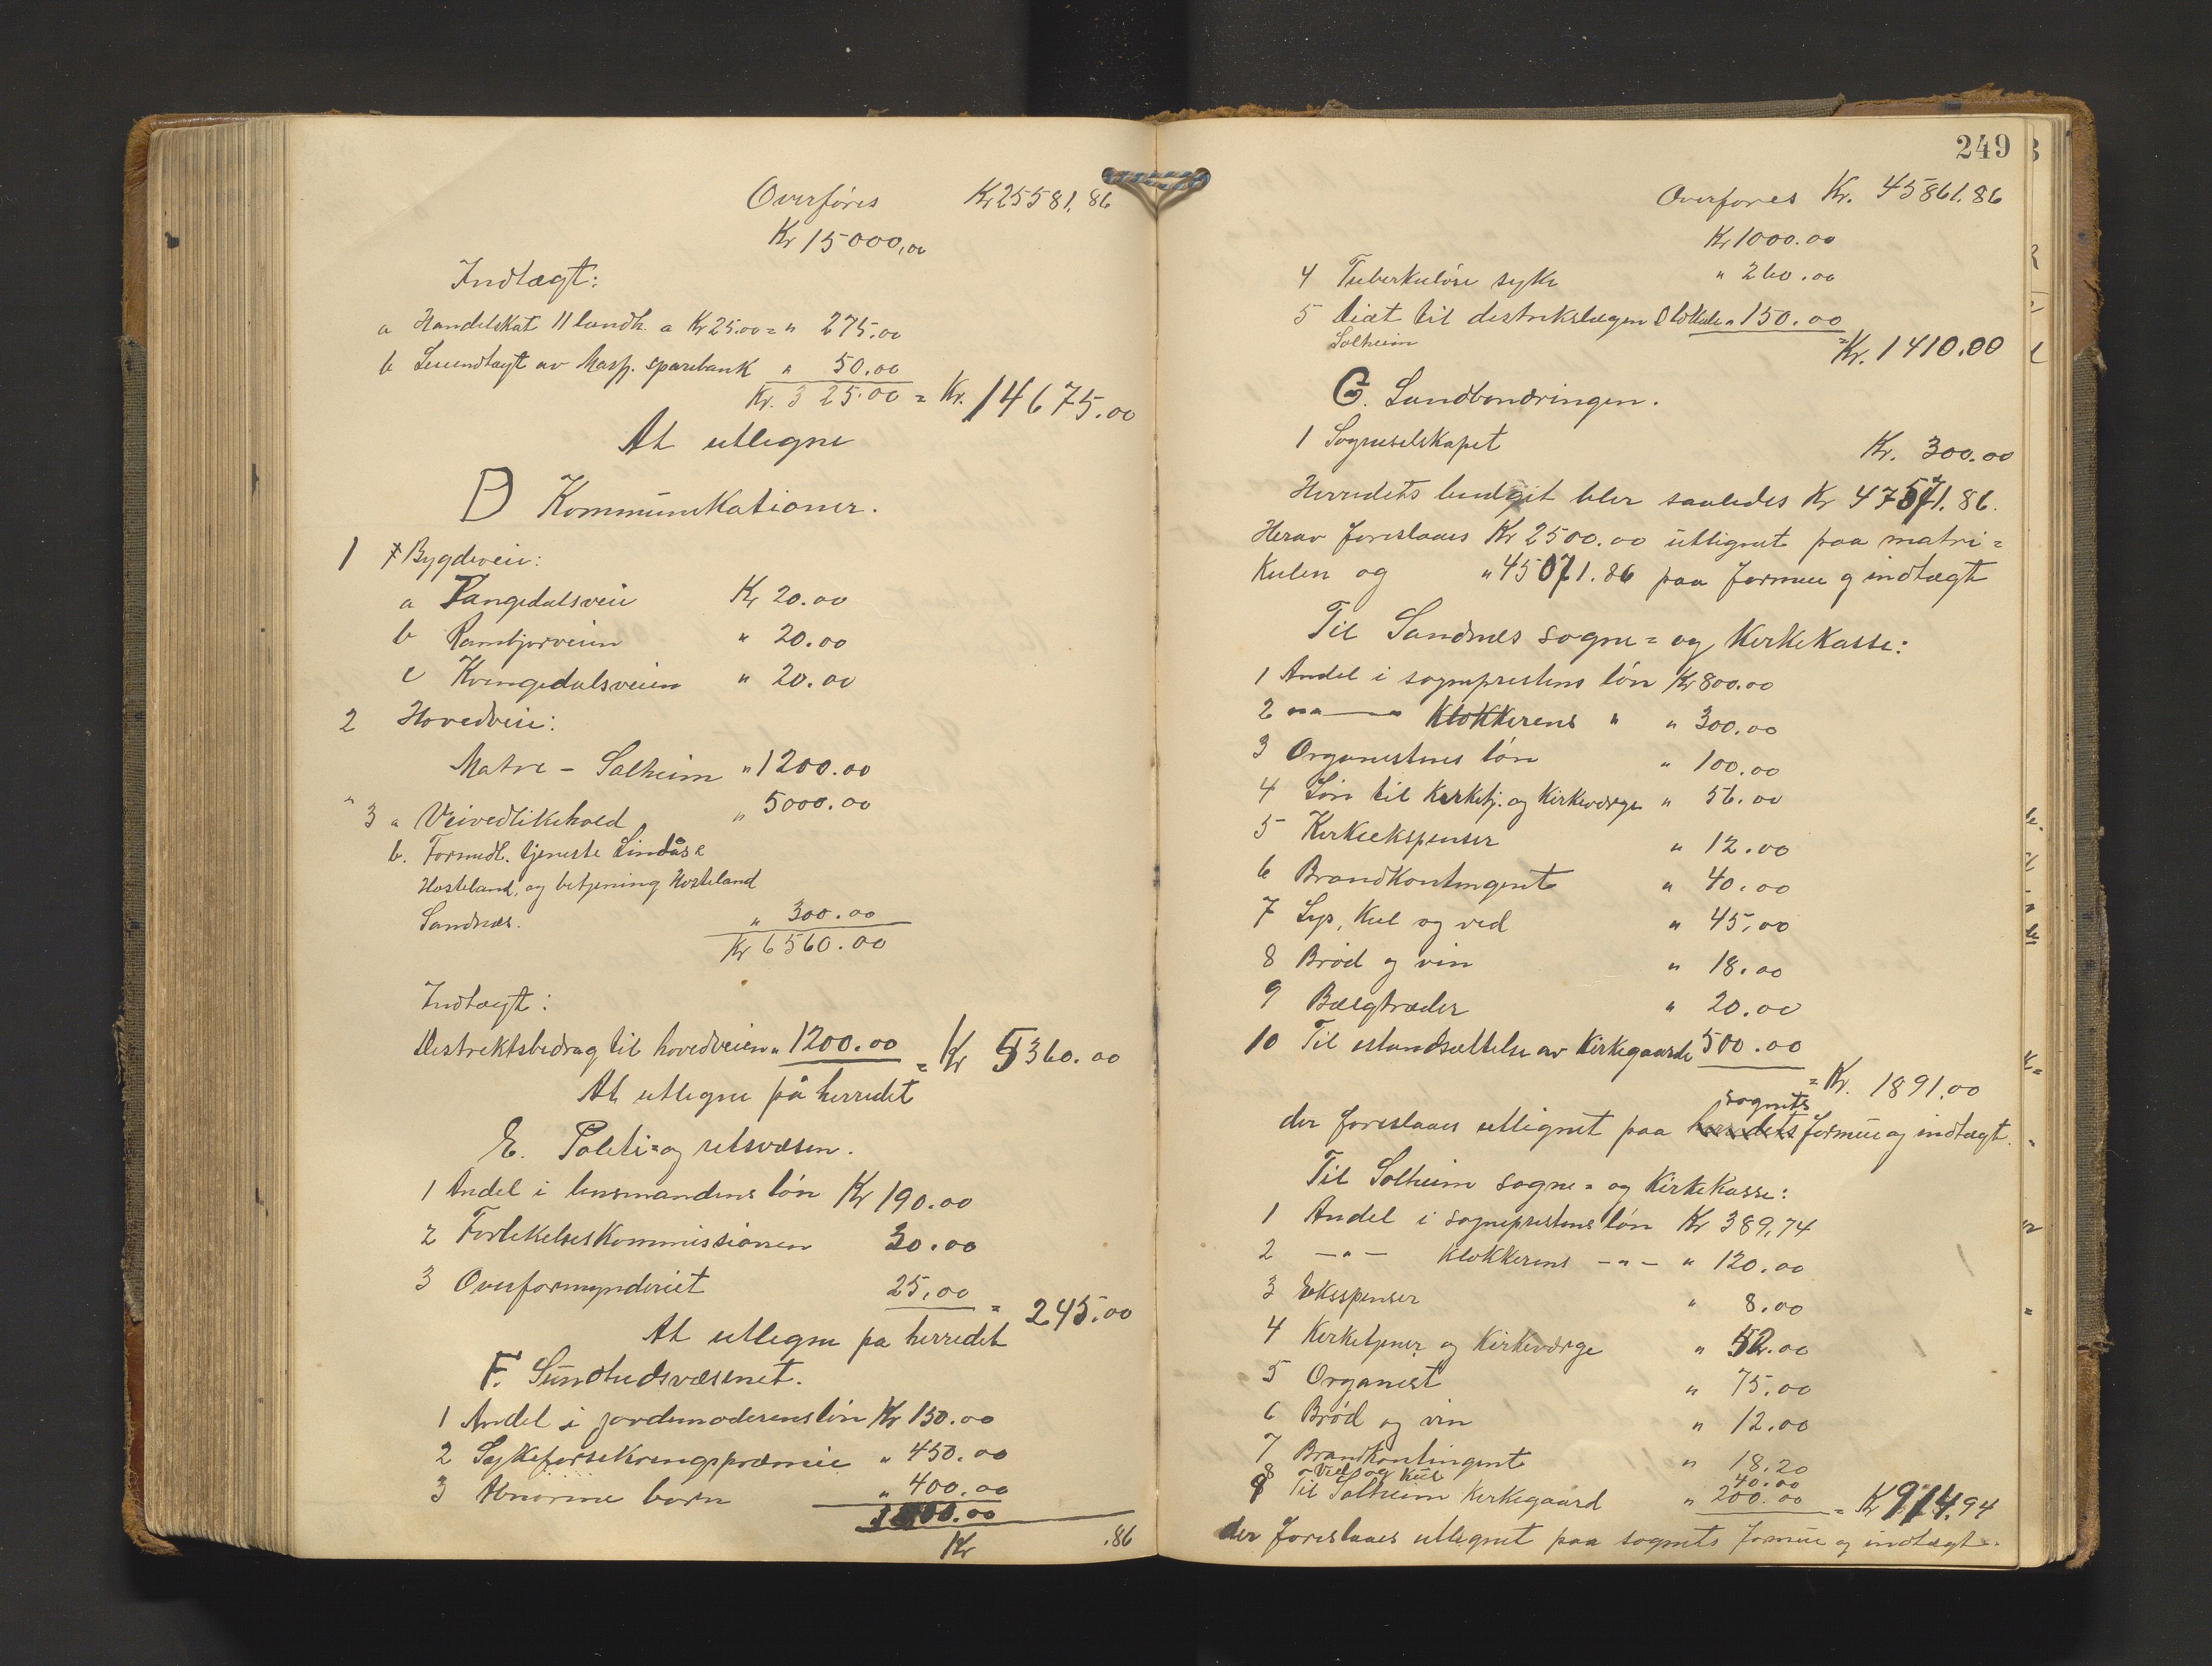 Overføres Kr 25581.86
Kr 15000,00
Indtægt:
a Handelskat 11 landh. a Kr 25.00 = " 275.00
b Leieindtægt av Masf. sparebank " 50.00
Kr. 325.00 = Kr. 14675.00
At utlegne
D Kommunikationer.
1 Bygdeveie:
a Tangedalsveie Kr 20.00
b Rambjorveien " 20.00
c Kvingedalsveien " 20.00
2 Hovedveie:
Matre - Solheim " 1200.00
" 3 a Veivedlikehold " 5000.00
b. Formidl. tjeneste Lindås &
Hosteland, og betjening Hosteland
Sandnæs. " 300.00
Kr 6560.00
Indtægt:
Distriktsbidrag til hovedveien " 1200.00 = Kr 5360.00
At utlegne på herredet
E. Politi= og retsvæsen.
1 Andel i lensmandens løn Kr 190.00
2 Forlikelseskommissionen 30.00
3 Overformynderiet 25,00 = 245.00
At utlegne pa herredet
F. Sundhedsvæsenet.
1 Andel i jordemoderens løn Kr 150.00
2 Sykeforsekringspræmie " 450.00
3 Abnorme børn " 400.00
1000.00
Kr .86
249
Overføres Kr. 45861.86
Kr 1000.00
4 Tuberkuløse syke " 260.00
5 Diæt til destrikslægen & lokale " 150.00
Solheim = Kr. 1410.00
G. Landbondringen.
1 Sogneselskapet Kr. 300.00
Herredets budgit bler saaledes Kr 47571.86.
Herav foreslaaes Kr 2500.00 utlignet paa matri=
kulen og " 45071.86 paa formue og indtægt
Til Sandnes sogne= og Kirkekasse:
1 Andel i sogneprestens løn Kr 800.00
2 " — " Klokkerens " " 300.00
3 Organistens løn " 100.00
4 Løn til Kirketj. og Kirkeværge " 56.00
5 Kirkeekspenser " 12.00
6 Brandkontingent " 40.00
7 Lys, Kul og ved " 45,00
8 Brød og vin " 18.00
9 Bælgtræder " 20.00
10 Til istandsættelse av Kirkegaarde 500.00
= Kr. 1891.00
sognets
der foreslaaes utlignet paa herredets formue og indtægt.
Til Solheim sogne= og Kirkekasse:
1 Andel i sogneprestens løn Kr 389,74
2 — " — Klokkerens — " — " 120.00
3 Ekspenser " 8.00
4 Kirketjener og Kirkeværge " 52.00
5 Organist " 75.00
6 Brød og vin " 12.00
7 Brandkontingent " 18.20
8 Ved og Kul 40.00
9 Til Solheim Kirkegaard " 200.00 = Kr 914.94
der foreslaaes utlegnet paa sognets formue og indtægt.